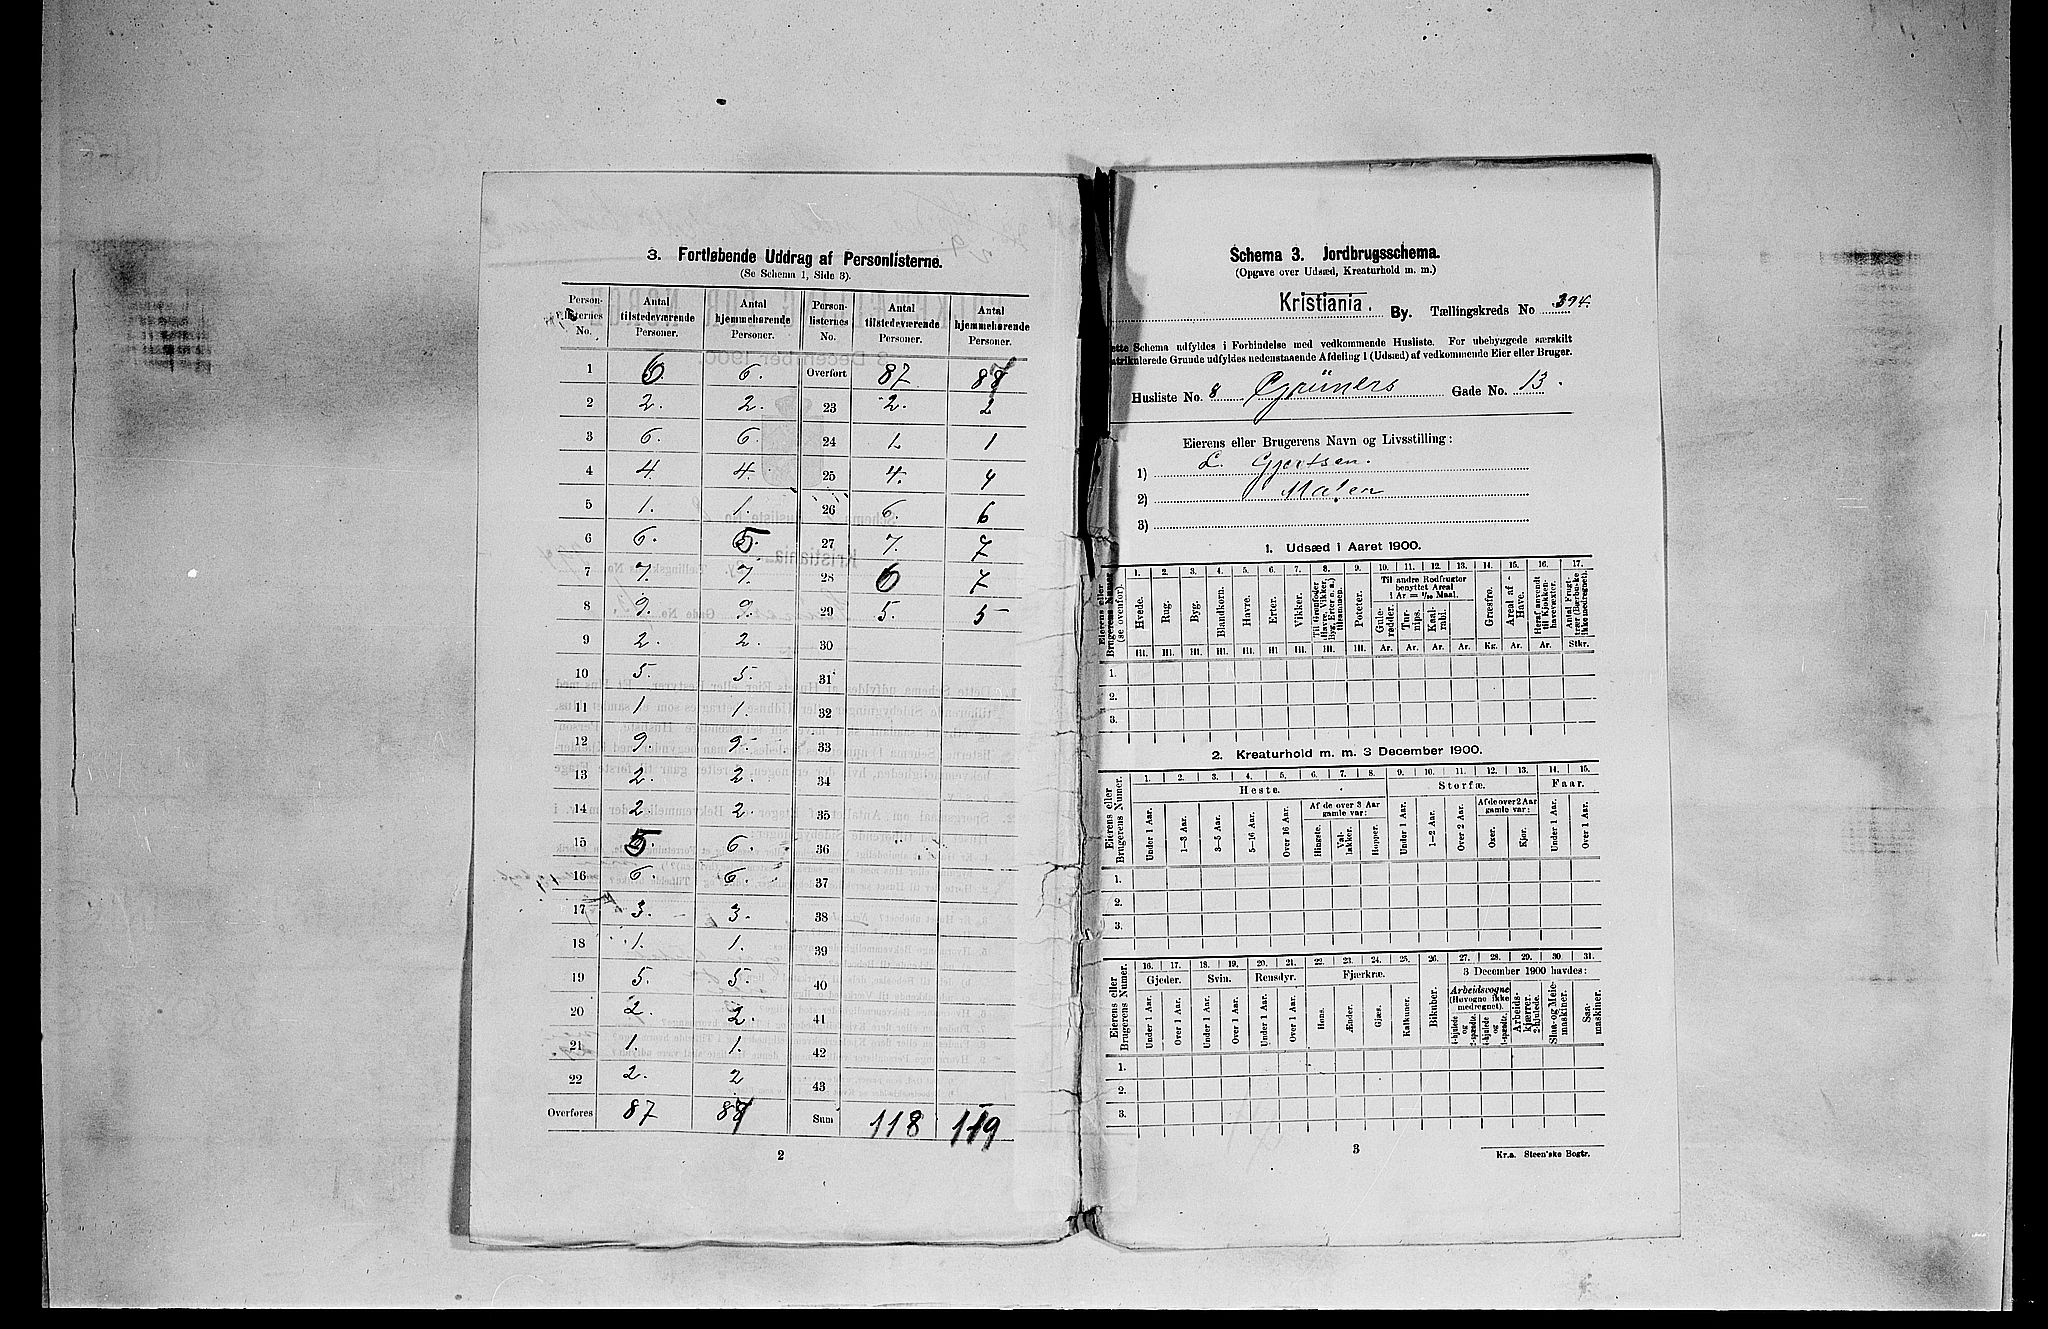 3. Fortløbende Uddrag af Personlisterne.
(Se Schema 1, Side 3).
Person-listernes No. | Antal tilstedeværende Personer. | Antal hjemmehørende Personer. | Person-listernes No. | Antal tilstedeværende Personer. | Antal hjemmehørende Personer.
1 6. 6. Overført 87 87
2 2. 2. 23 2. 2
3 6. 6. 24 1. 1
4 4. 4. 25 4. 4
5 1. 1. 26 6. 6
6 6. 5. 27 7. 7
7 7. 7. 28 6 7
8 9. 9. 29 5. 5
9 2. 2. 30
10 5. 5. 31
11 1 1. 32
12 9. 9. 33
13 2. 2. 34
14 2 2. 35
15 5. 6. 36
16 6. 6. 37
17 3. 3. 38
18 1. 1. 39
19 5. 5. 40
20 2. 2. 41
21 1. 1. 42
22 2. 2 43
Overføres 87 87 Sum 118 119
2
Schema 3. Jordbrugsschema.
(Opgave over Udsæd, Kreaturhold m. m.)
Kristiania. By. Tællingskreds No 394.
Schema udfyldes i Forbindelse med vedkommende Husliste. For ubebyggede særskilt
Grunde udfyldes nedenstaaende Afdeling 1 (Udsæd) af vedkommende Eier eller Bruger.
Husliste No. 8 Grüners Gade No. 13.
Eierens eller Brugerens Navn og Livsstilling:
1) L. Gjertsen.
2) Maler
3)
1. Udsæd i Aaret 1900.
Eierens eller Brugerens Numer (se ovenfor).
1. 2. 3. 4. 5. 6. 7. 8. 9. 10. 11. 12. 13. 14. 15. 16. 17.
Til andre Rodfrugter benyttet Areal
1 Ar = 1/10 Maal.
Hvede. Rug. Byg. Blandkorn. Havre. Erter. Vikker. Til Grønfoder Havre, Vikker, Byg, Erter o. a.) tilsammen. Poteter. Gule-rødder. Tur-nips. Kaal-rabi. Græsfrø. Areal af Have. Heraf anvendt til Kjøkken-havevæxter. Antal Frugt-trær (Bærbuske ikke medregnet).
Hl. Hl. Hl. Hl. Hl. Hl Hl. Hl. Hl. Ar. Ar. Ar. Ar. Kg. Ar. Ar. Stkr.
1.
2.
3.
2. Kreaturhold m. m. 3 December 1900.
Eierens eller Brugerens Numer.
1. 2. 3. 4. 5. 6. 7. 8. 9. 10. 11. 12. 13. 14. 15.
Heste. Storfæ. Faar.
Af de over 3 Aar gamle var: Af de over 2 Aar gamle var:
Under 1 Aar. 1–3 Aar. 3–5 Aar. 5–16 Aar. Over 16 Aar. Hingste. Val-lakker. Hopper. Under 1 Aar. 1–2 Aar. Over 2 Aar. Oxer. Kjør. Under 1 Aar. Over 1 Aar.
1.
2.
3.
Eierens eller Brugerens Numer.
16. 17. 18. 19. 20. 21. 22. 23. 24. 25. 26. 27. 28. 29. 30. 31.
Gjeder. Svin. Rensdyr. Fjærkræ. 3 December 1900 havdes:
Arbeidsvogne (Hovogne ikke medregnet).
Under 1 Aar. Over 1 Aar. Under 1 Aar. Over 1 Aar. Under 1 Aar. Over 1 Aar. Høns. Ænder. Gjæs. Kalkuner. Bikuber. 4-hjulede og 2-spændte. 4-hjulede og 1-spændte. Arbeids-kjærrer, 2-hjulede. Slaa- og Meie-maskiner. Saa-maskiner.
1.
2.
3.
3
Kr.a. Steen'ske Bogtr.